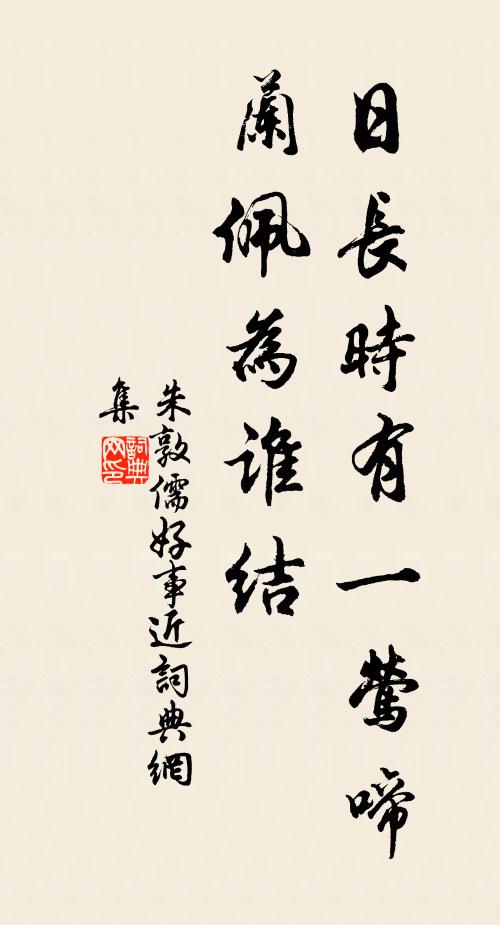 日長時有一鶯啼
蘭佩為誰結
朱敦儒好事近詞典網
集
詞典網印